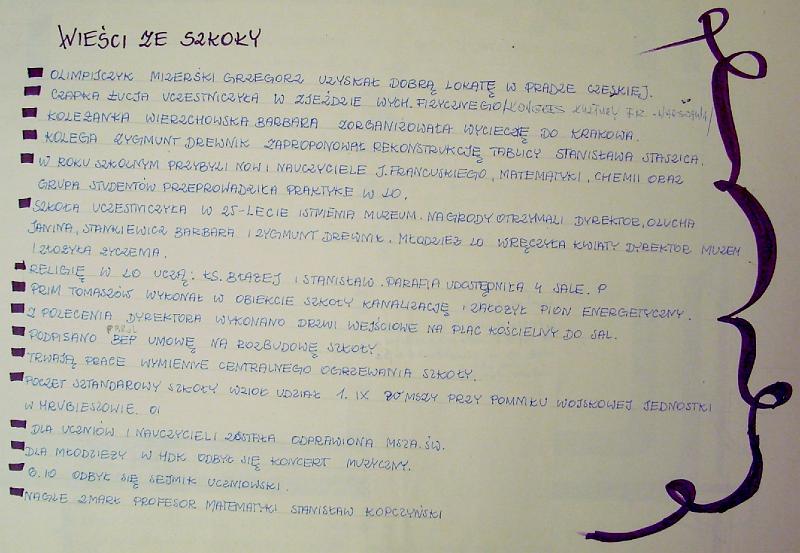 WIEŚCI ZE SZKOŁY
OLIMPIJCZYK MIZERSKI GRZEGORZ UZYSKAŁ DOBRĄ LOKATĘ W PRADZE CZESKIEJ.
CZAPKA ŁUCJA UCZESTNICZYŁA W ZJEŹDZIE WYCH. FIZYCZNEGO /KONGRES KULTURY FIZ. WARSZAWA/
KOLEŻANKA WIERZCHOWSKA BARBARA ZORGANIZOWAŁA WYCIECZKĘ DO KRAKOWA.
KOLEGA ZYGMUNT DREWNIK ZAPROPONOWAŁ REKONSTRUKCJĘ TABLICY STANISŁAWA STASZICA.
W ROKU SZKOLNYM PRZYBYLI NOWI NAUCZYCIELE J. FRANCUSKIEGO, MATEMATYKI, CHEMII ORAZ
GRUPA STUDENTÓW PRZEPROWADZIŁA PRAKTYKĘ W LO.
SZKOŁA UCZESTNICZYŁA W 25-LECIE ISTNIENIA MUZEUM. NAGRODY OTRZYMALI DYREKTOR, OLUCHA
JANINA, STANKIEWICZ BARBARA I ZYGMUNT DREWNIK. MŁODZIEŻ LO WRĘCZYŁA KWIATY DYREKTOR MUZEM
I ZŁOŻYŁA ŻYCZENIA.
RELIGIĘ W LO UCZĄ: KS. BŁAŻEJ I STANISŁAW. PARAFIA UDOSTĘPNIŁA 4 SALE. P
PRIM TOMASZÓW WYKONAŁ W OBIEKCIE SZKOŁY KANALIZACJĘ I ZAŁOŻYŁ PION ENERGETYCZNY.
Z POLECENIA DYREKTORA WYKONANO DRZWI WEJŚCIOWE NA PLAC KOŚCIELNY DO SAL.
PODPISANO BEP UMOWĘ NA ROZBUDOWĘ SZKOŁY.
TRWAJĄ PRACE WYMIENNE CENTRALNEGO OGRZEWANIA SZKOŁY.
POCZET SZTANDAROWY SZKOŁY WZIOŁ UDZIAŁ 1. IX MSZY PRZY POMNIKU WOJSKOWEJ JEDNOSTKI
W HRUBIESZOWIE. 01
DLA UCZNIÓW I NAUCZYCIELI ZOSTAŁA ODPRAWIONA MSZA ŚW.
DLA MŁODZIEŻY W HDK ODBYŁ SIĘ KONCERT MUZYCZNY.
8.10 ODBYŁ SIĘ SEJMIK UCZNIOWSKI.
NAGLE ZMARŁ PROFESOR MATEMATYKI STANISŁAW KOPCZYŃSKI